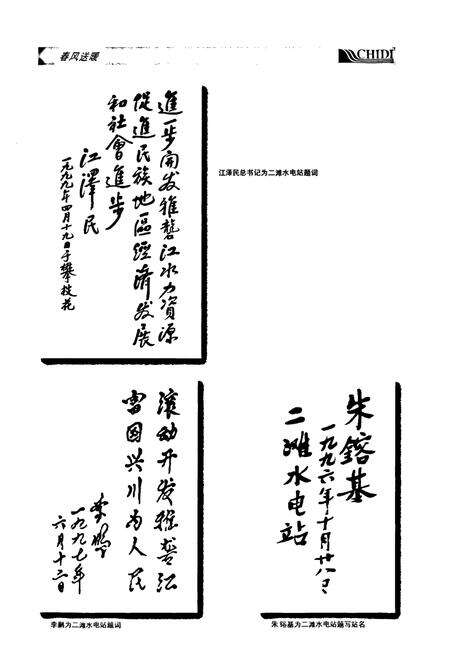 春风送暖
CHIDI
進一步開发雅礱江水力資源
促進民族地區經濟发展
和社會進步
江澤民
一九九九年四月十九日于攀枝花
江泽民总书记为二滩水电站题词
滚动开发雅砻江
富国兴川为人民
李鹏
一九九七年
六月十三日
李鹏为二滩水电站题词
朱鎔基
一九九六年十月廿八日
二滩水电站
朱镕基为二滩水电站题写站名